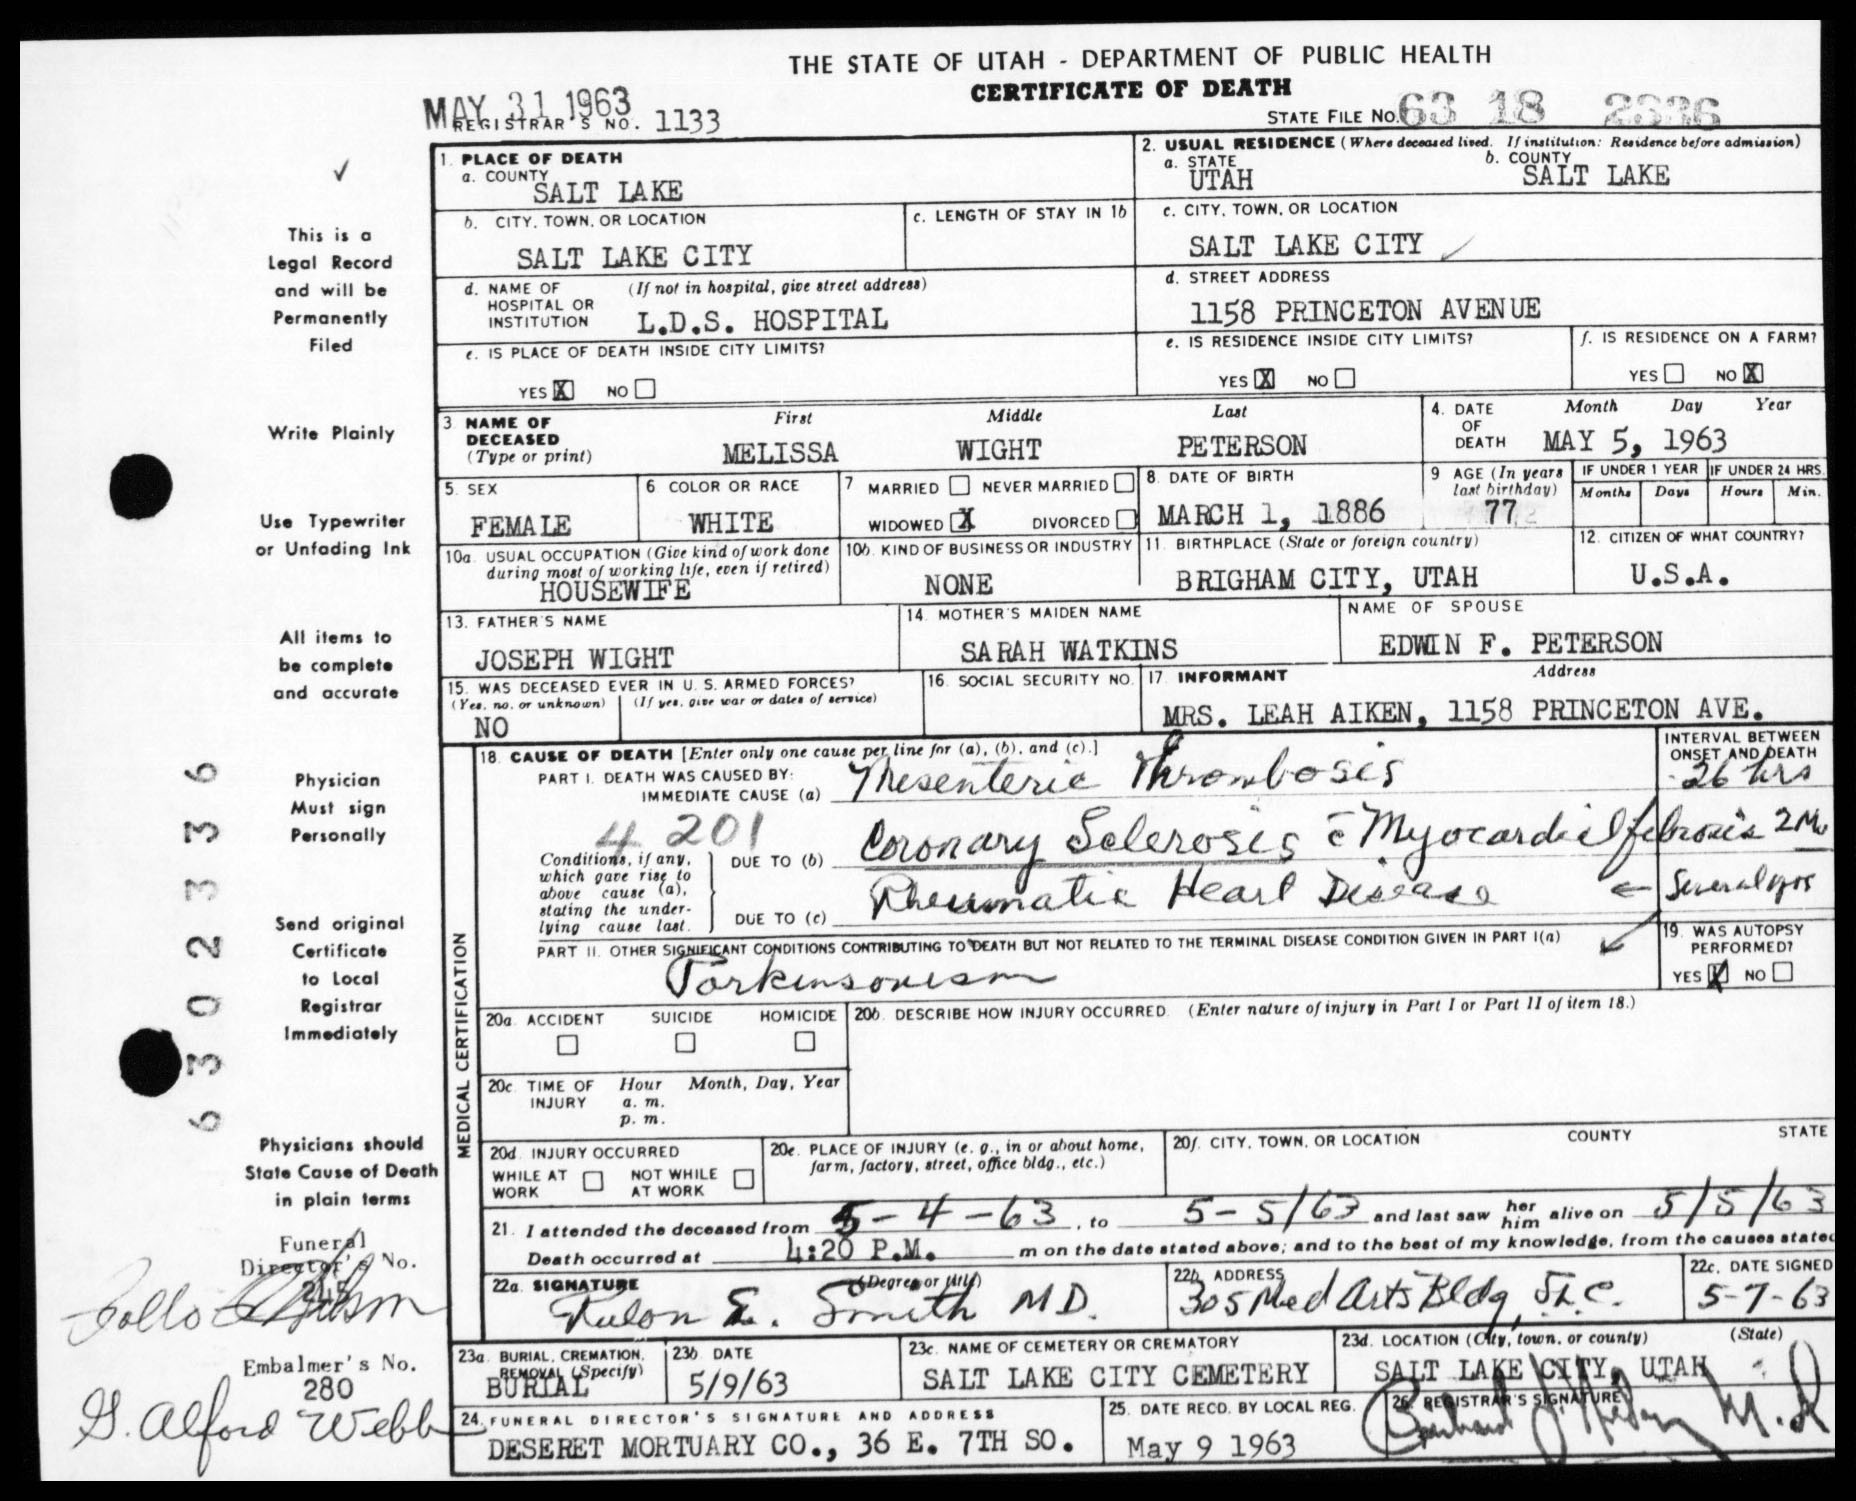 THE STATE OF UTAH - DEPARTMENT OF PUBLIC HEALTH
CERTIFICATE OF DEATH
MAY 31 1963
REGISTRAR'S NO. 1133
STATE FILE NO. 63 18 2336
This is a
Legal Record
and will be
Permanently
Filed
Write Plainly
Use Typewriter
or Unfading Ink
All items to
be complete
and accurate
Physician
Must sign
Personally
Send original
Certificate
to Local
Registrar
Immediately
Physicians should
State Cause of Death
in plain terms
Funeral
Director's No.
245
Embalmer's No.
280
G. Alford Webb
6302336
1. PLACE OF DEATH
a. COUNTY
SALT LAKE
b. CITY, TOWN, OR LOCATION
SALT LAKE CITY
c. LENGTH OF STAY IN 1b
d. NAME OF HOSPITAL OR INSTITUTION (If not in hospital, give street address)
L.D.S. HOSPITAL
e. IS PLACE OF DEATH INSIDE CITY LIMITS?
YES X NO
2. USUAL RESIDENCE (Where deceased lived. If institution: Residence before admission)
a. STATE
UTAH
b. COUNTY
SALT LAKE
c. CITY, TOWN, OR LOCATION
SALT LAKE CITY
d. STREET ADDRESS
1158 PRINCETON AVENUE
e. IS RESIDENCE INSIDE CITY LIMITS?
YES X NO
f. IS RESIDENCE ON A FARM?
YES NO X
3 NAME OF DECEASED (Type or print)
First Middle Last
MELISSA WIGHT PETERSON
4. DATE OF DEATH Month Day Year
MAY 5, 1963
5. SEX
FEMALE
6 COLOR OR RACE
WHITE
7 MARRIED NEVER MARRIED
WIDOWED X DIVORCED
8. DATE OF BIRTH
MARCH 1, 1886
9 AGE (In years last birthday)
77
IF UNDER 1 YEAR
Months Days
IF UNDER 24 HRS.
Hours Min.
10a. USUAL OCCUPATION (Give kind of work done during most of working life, even if retired)
HOUSEWIFE
10b. KIND OF BUSINESS OR INDUSTRY
NONE
11. BIRTHPLACE (State or foreign country)
BRIGHAM CITY, UTAH
12. CITIZEN OF WHAT COUNTRY?
U.S.A.
13. FATHER'S NAME
JOSEPH WIGHT
14. MOTHER'S MAIDEN NAME
SARAH WATKINS
NAME OF SPOUSE
EDWIN F. PETERSON
15. WAS DECEASED EVER IN U. S. ARMED FORCES?
(Yes, no, or unknown) (If yes, give war or dates of service)
NO
16. SOCIAL SECURITY NO.
17. INFORMANT Address
MRS. LEAH AIKEN, 1158 PRINCETON AVE.
MEDICAL CERTIFICATION
18. CAUSE OF DEATH [Enter only one cause per line for (a), (b), and (c).]
INTERVAL BETWEEN ONSET AND DEATH
PART I. DEATH WAS CAUSED BY:
IMMEDIATE CAUSE (a) Mesenteric Thrombosis 26 hrs
4 201
Conditions, if any, which gave rise to above cause (a), stating the underlying cause last.
DUE TO (b) Coronary Sclerosis c̄ Myocardial fibrosis 2 Mo
DUE TO (c) Rheumatic Heart Disease ← Several yrs
PART II. OTHER SIGNIFICANT CONDITIONS CONTRIBUTING TO DEATH BUT NOT RELATED TO THE TERMINAL DISEASE CONDITION GIVEN IN PART I(a)
Parkinsonism
19. WAS AUTOPSY PERFORMED?
YES X NO
20a. ACCIDENT SUICIDE HOMICIDE
20b. DESCRIBE HOW INJURY OCCURRED. (Enter nature of injury in Part I or Part II of item 18.)
20c. TIME OF INJURY Hour Month, Day, Year
a. m.
p. m.
20d. INJURY OCCURRED
WHILE AT WORK NOT WHILE AT WORK
20e. PLACE OF INJURY (e. g., in or about home, farm, factory, street, office bldg., etc.)
20f. CITY, TOWN, OR LOCATION COUNTY STATE
21. I attended the deceased from 5-4-63, to 5-5/63 and last saw her him alive on 5/5/63
Death occurred at 4:20 P.M. m on the date stated above; and to the best of my knowledge, from the causes stated
22a. SIGNATURE (Degree or title)
E. Smith MD.
22b. ADDRESS
305 Med Arts Bldg, S.L.C.
22c. DATE SIGNED
5-7-63
23a. BURIAL, CREMATION, REMOVAL (Specify)
BURIAL
23b. DATE
5/9/63
23c. NAME OF CEMETERY OR CREMATORY
SALT LAKE CITY CEMETERY
23d. LOCATION (City, town, or county) (State)
SALT LAKE CITY, UTAH
24. FUNERAL DIRECTOR'S SIGNATURE AND ADDRESS
DESERET MORTUARY CO., 36 E. 7TH SO.
25. DATE RECD. BY LOCAL REG.
May 9 1963
26. REGISTRAR'S SIGNATURE
M.d